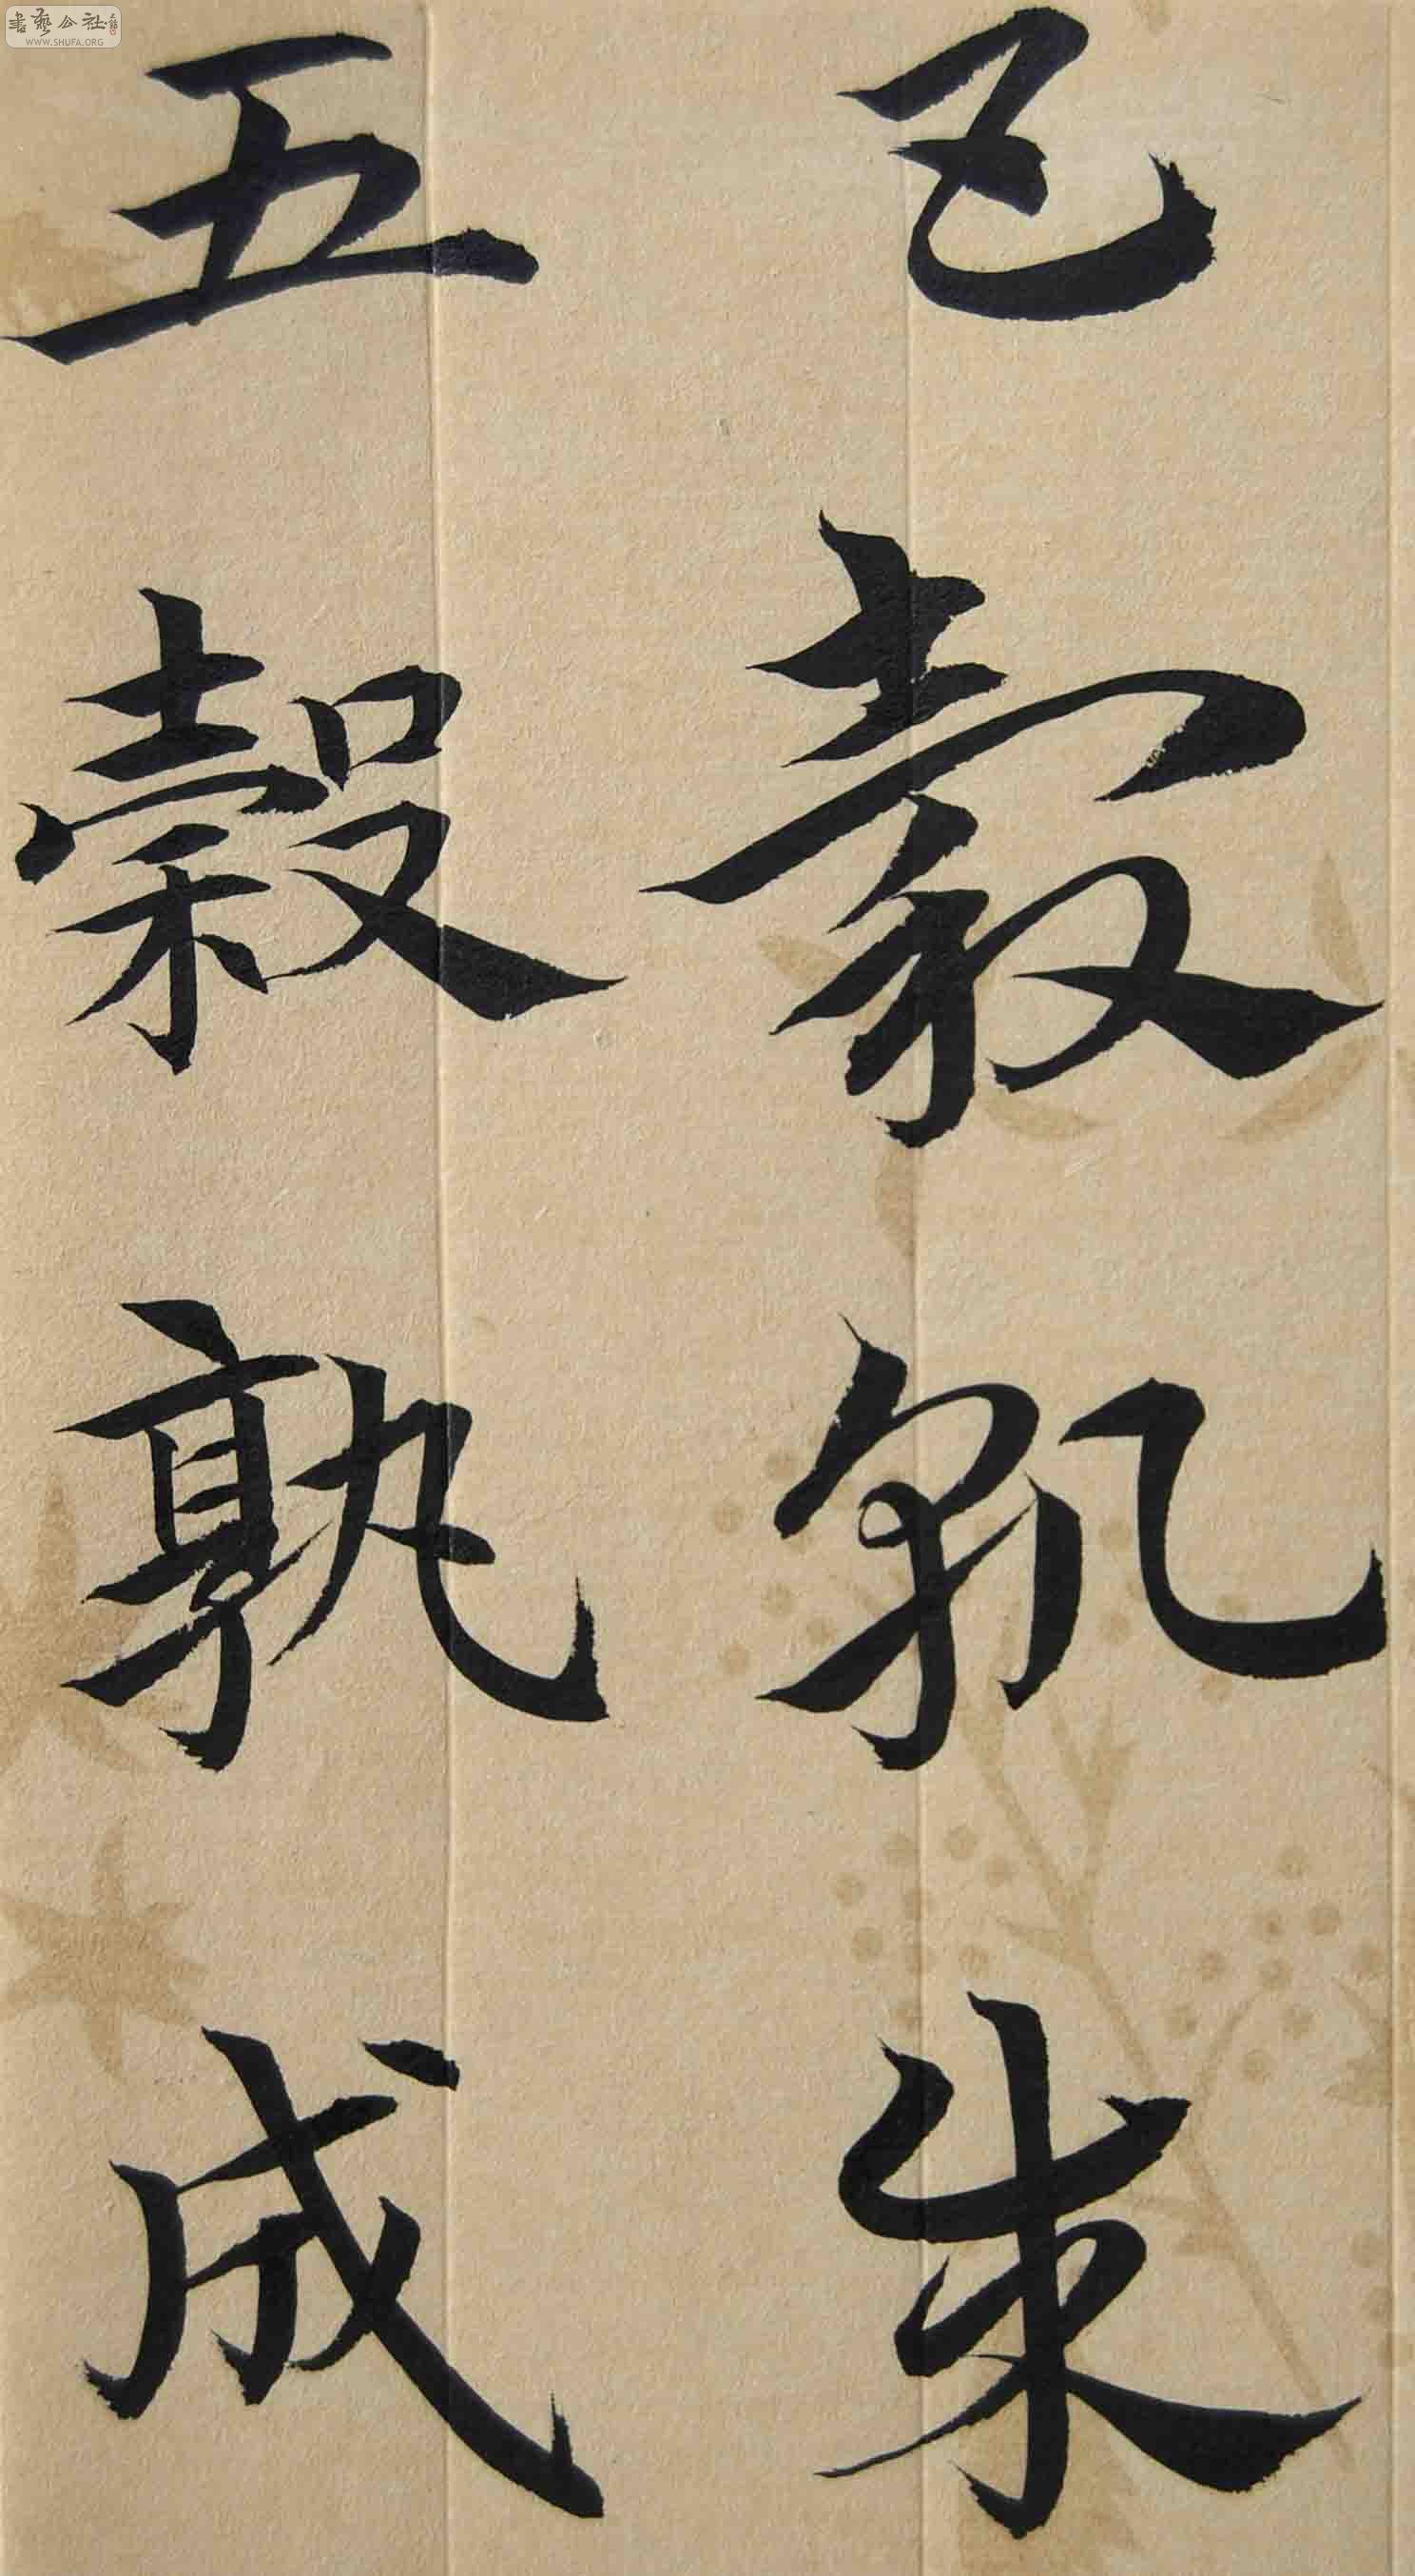 書藝公社
WWW.SHUFA.ORG
五穀孰成
五穀孰成